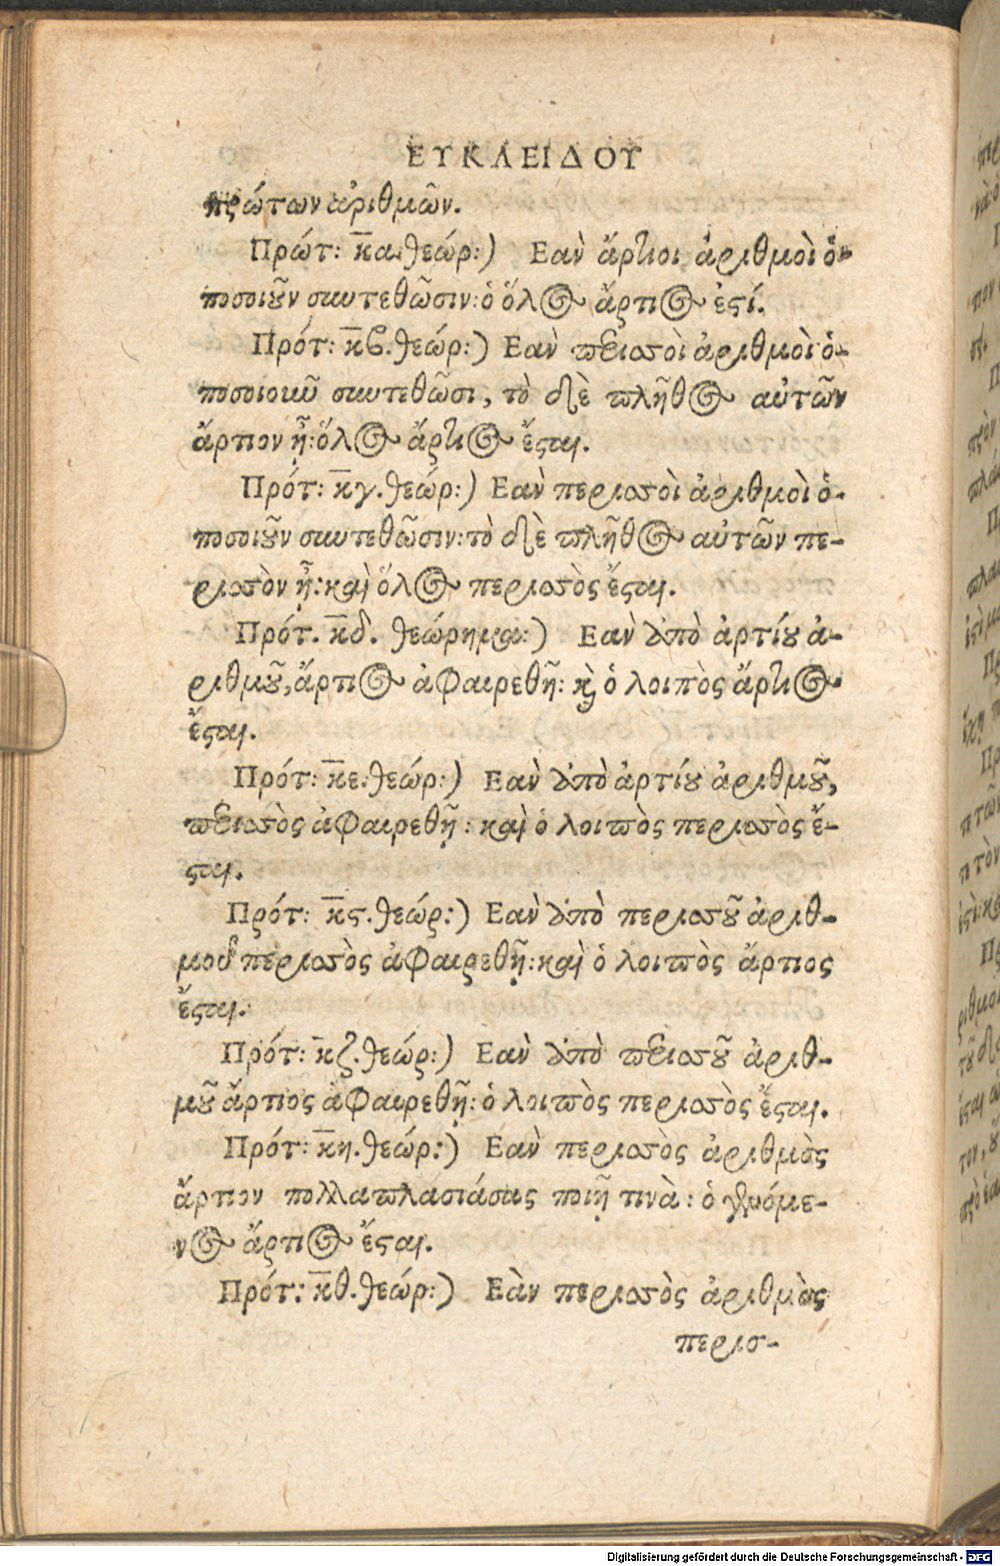 ΕΥΚΛΕΙΔΟΥ
πρώτων ἀριθμῶν.
Πρώτ: κ̅α. θεώρ:) Εαν̀ ἄρτιοι ἀριθμοὶ ὁ-
ποσοιοῦν συντεθῶσιν: ὁ ὅλος ἄρτιος ἐστί.
Πρότ: κ̅β. θεώρ:) Εαν̀ περισσοὶ ἀριθμοὶ ὁ-
ποσοιοιοῦν συντεθῶσι, τὸ δὲ πλῆθος αὐτῶν
ἄρτιον ᾖ: ὅλος ἄρτιος ἔσται.
Πρότ: κ̅γ. θεώρ:) Εαν̀ περισσοὶ ἀριθμοὶ ὁ-
ποσοιοῦν συντεθῶσιν: τὸ δὲ πλῆθος αὐτῶν πε-
ρισσὸν ᾖ: καὶ ὅλος περισσὸς ἔσται.
Πρότ. κ̅δ. θεώρημα:) Εαν̀ ἀπὸ ἀρτίου ἀ-
ριθμοῦ, ἄρτιος ἀφαιρεθῇ: καὶ ὁ λοιπὸς ἄρτιος
ἔσται.
Πρότ: κ̅ε. θεώρ:) Εαν̀ ἀπὸ ἀρτίου ἀριθμοῦ,
περισσὸς ἀφαιρεθῇ: καὶ ὁ λοιπὸς περισσὸς ἔ-
σται.
Πρότ: κ̅ς. θεώρ:) Εαν̀ ἀπὸ περισσοῦ ἀριθ-
μοῦ περισσὸς ἀφαιρεθῇ: καὶ ὁ λοιπὸς ἄρτιος
ἔσται.
Πρότ: κ̅ζ. θεώρ:) Εαν̀ ἀπὸ περισσοῦ ἀριθ-
μοῦ ἄρτιος ἀφαιρεθῇ: ὁ λοιπὸς περισσὸς ἔσται.
Πρότ: κ̅η. θεώρ:) Εαν̀ περισσὸς ἀριθμὸς
ἄρτιον πολλαπλασιάσας ποιῇ τινὰ: ὁ γενόμε-
νος ἄρτιος ἔσται.
Πρότ: κ̅θ. θεώρ:) Εὰν περισσὸς ἀριθμὸς
περισ-
Digitalisierung gefördert durch die Deutsche Forschungsgemeinschaft - DFG